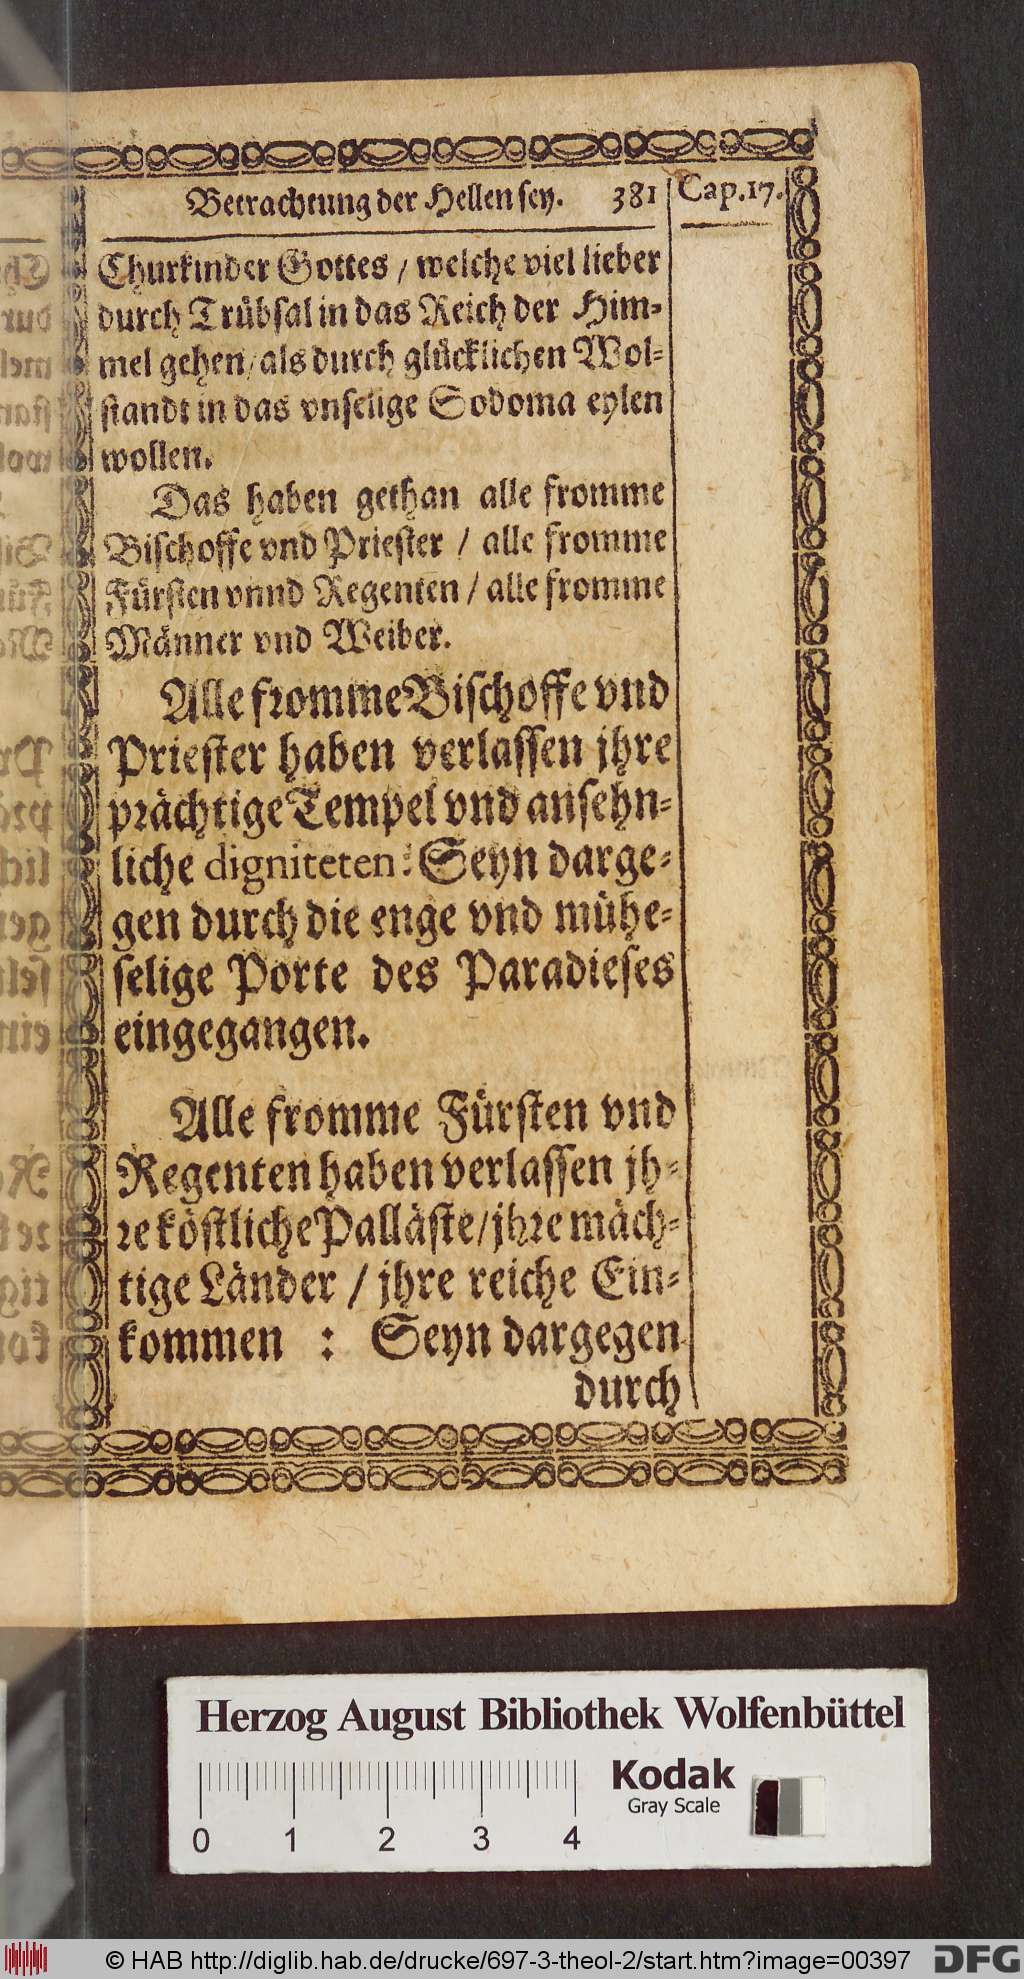 Betrachtung der Hellen sey. 381 Cap. 17.
Churkinder Gottes / welche viel lieber
durch Trübsal in das Reich der Him-
mel gehen / als durch glücklichen Wol-
standt in das vnselige Sodoma eylen
wollen.
Das haben gethan alle fromme
Bischoffe vnd Priester / alle fromme
Fürsten vnnd Regenten / alle fromme
Männer vnd Weiber.
Alle fromme Bischoffe vnd
Priester haben verlassen jhre
prächtige Tempel vnd ansehn-
liche digniteten: Seyn darge-
gen durch die enge vnd mühe-
selige Porte des Paradieses
eingegangen.
Alle fromme Fürsten vnd
Regenten haben verlassen jh-
re köstliche Palläste / jhre mäch-
tige Länder / jhre reiche Ein-
kommen : Seyn dargegen
durch
Herzog August Bibliothek Wolfenbüttel
Kodak
Gray Scale
0 1 2 3 4
© HAB http://diglib.hab.de/drucke/697-3-theol-2/start.htm?image=00397 DFG